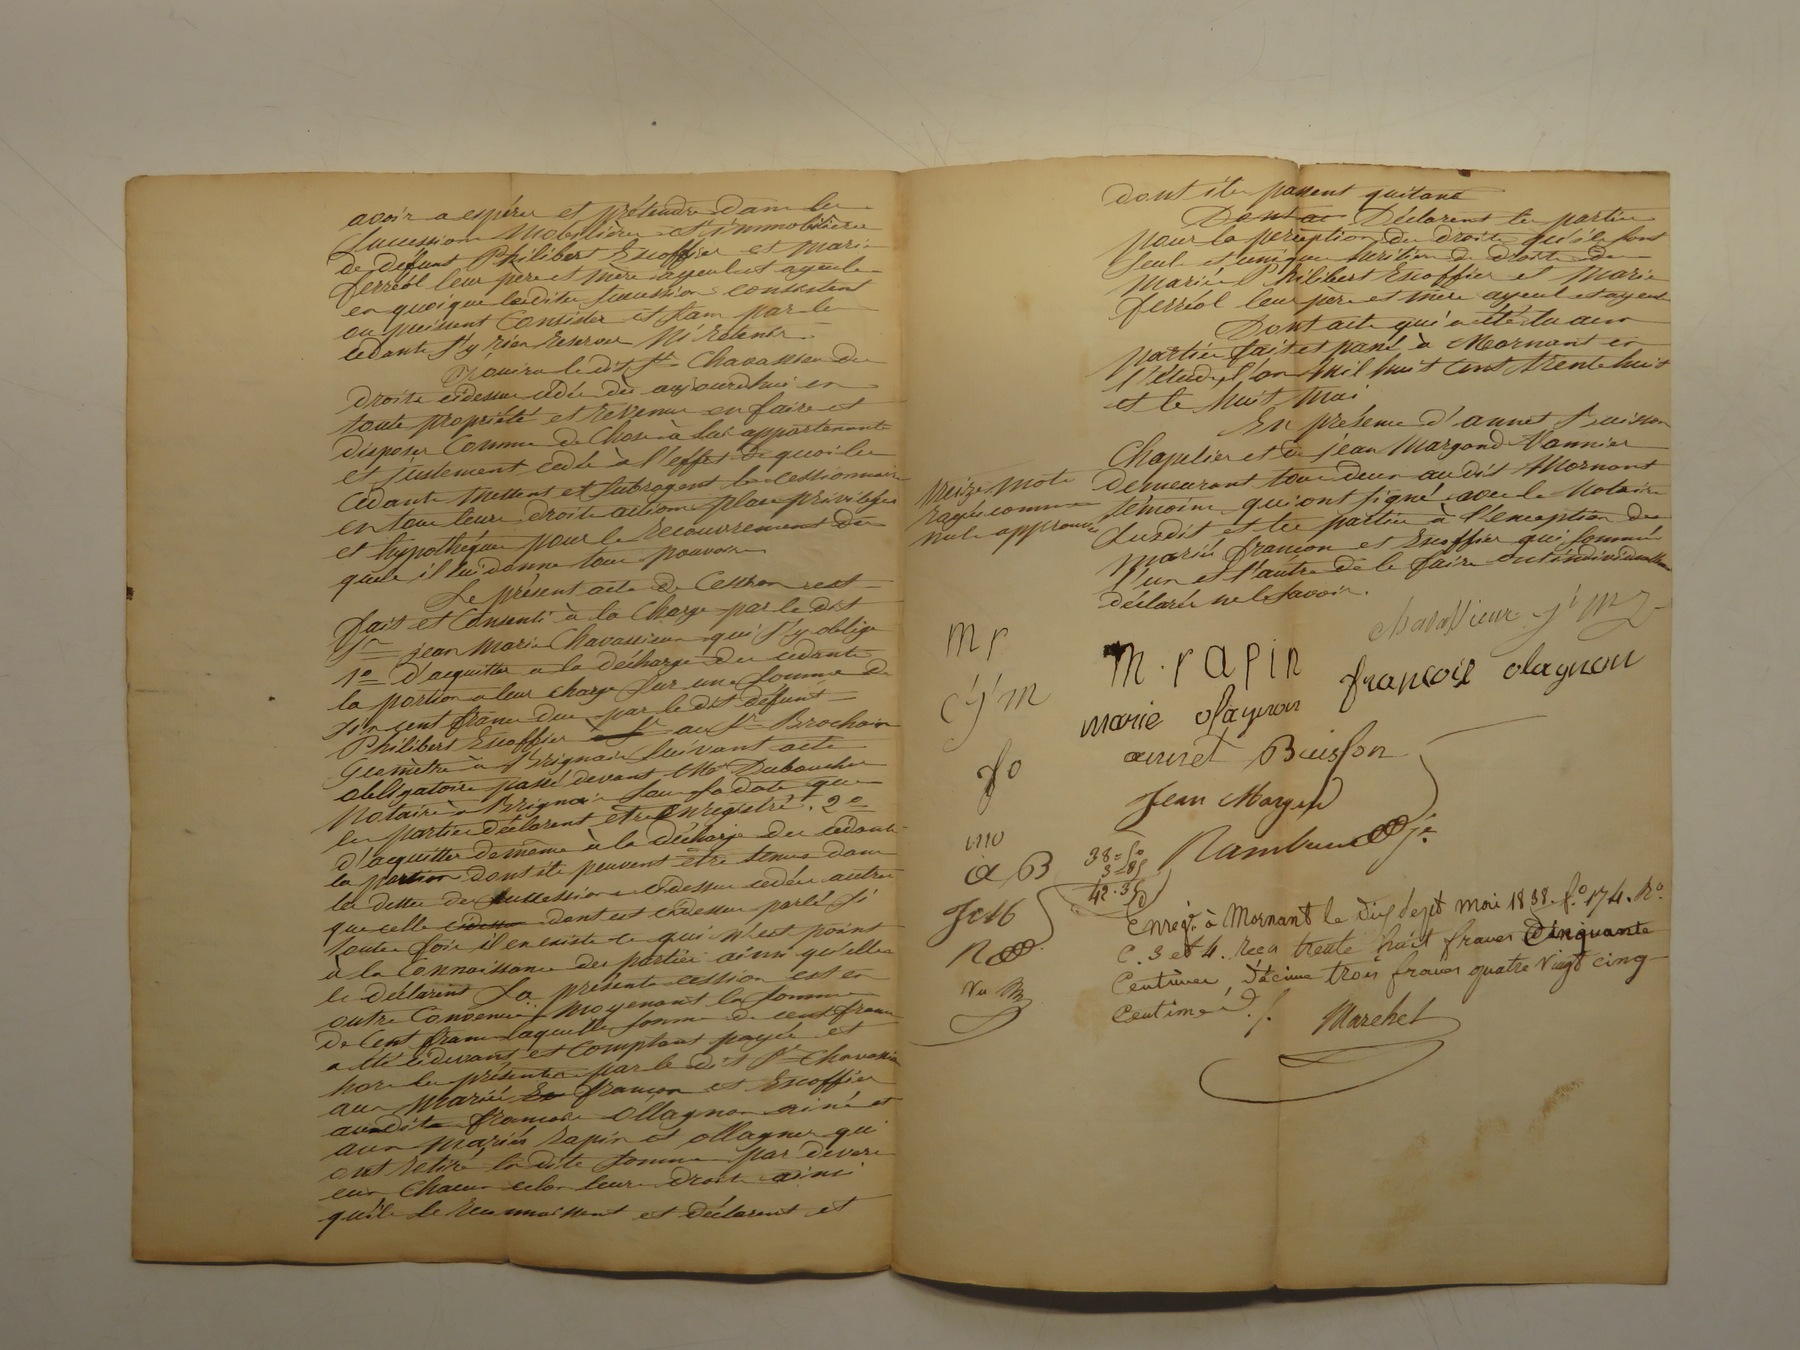 avoir a espérer et prétendre dans les
successions Mobilières et immobilières
de défunt Philibert Escoffier et Marie
ferréol leur père et mère ayeul et ayeule
en quoique lesdites successions consistent
ou puissent Consister et sans par les
cédants s'y rien reserver Ni retenir
Jouira le dit Sr Chavassieu des
droits cidessus cédés dès aujourdhui en
toute propriété et revenus en faire et
disposer Comme de Chose à lui appartenante
et justement cédé à l'effet de quoi les
Cédants mettent et subrogent le cessionnaire
en tous leurs droits actions place privilèges
et hypothèques pour le Recouvrement des
quels il lui donne tous pouvoirs
Le présent acte de Cession est
fait et Consenti à la Charge par le dit
Sr jean Marie Chavassieu qui s'y oblige
1o D'acquitter a la décharge des cédants
la portion a leur charge sur une somme de
six cent francs due par le dit défunt
Philibert Escoffier au Sr Brochain
Géomètre à Brignais suivant acte
obligatoire passé devant Me Duboucher
Notaire à Brignais sous sa date que
les parties déclarent être Enregistré. 2o
d'acquitter de même à la décharge des cédants
la portion dont ils peuvent être tenus dans
les dettes des succession cidessus cédées autres
que celle dont est cidessus parlé si
toute fois il en existe ce qui n'est point
à la Connaissance des parties ainsi qu'elles
le déclarent La présente cession est en
outre Convenue Moyenant la somme
de Cent francs laquelle somme de cent francs
a été cidevant et Comptant payée et
hors les présentes par le dit Sr Chavassieu
aux Mariés françon et Escoffier
audit françois Ollagnon ainé et
aux Mariés Rapin et ollagnon qui
ont retiré la dite somme par devers
eux Chacun selon leurs droits ainsi
qu'ils le reconnaissent et déclarent et
dont ils passent quitance
Déclarent les parties
pour la perception des droits qu'ils sont
seul et unique héritiers de droits des
Mariés Philibert Escoffier et Marie
ferréol leur père et mère ayeul et ayeule
Dont acte qui a été lu aux
parties fait et passé à Mornant en
l'étude l'an Mil huit Cent trente huit
et le huit Mai
En présence d'annet Buisson
Chapelier et de jean Margand Vannier
demeurant tous deux audit Mornant
témoins qui ont signé avec le Notaire
susdit et les parties à l'exception des
Mariés françon et Escoffier qui sommés
l'un et l'autre de le faire ont individuellement
déclaré ne le savoir.
treize mots
rayés comme
nuls approuvés
chavassieux j m
M r
M. rapin
françois olagnon
C j m
marie olagnon
fo
annet Buisson
Jean Margand
mo
a B
38 = 50
3 = 85
42 . 35
Enregt. à Mornant le dix sept mai 1838. fo. 174. Ro.
C. 3 et 4. Reçu trente huit francs Cinquante
Centimes, Décime trois francs quatre vingt cinq
Centimes
Marchet